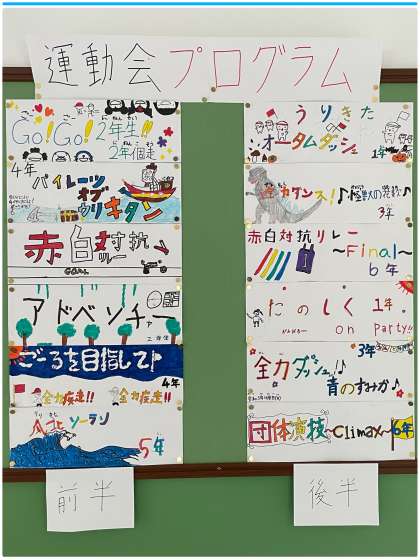 運動会プログラム
GO!GO!2年生!!
2年個走
4年
パイレーツ
オブ
ウリキタン
赤白対抗
リレー
GOAL
アドベンチャー
2年生
ごーるを目指して
4年
全力疾走!! 全力疾走!!
ソーラン
5年
前半
うりきた
オータムダッシュ
1年
カダンス!♪
3年
赤白対抗リレー
~Final~
6年
たのしく 1年
on Party!!
3年
全力ダッシュ!♪
青のすみか♪
団体演技~Climax~6年
後半